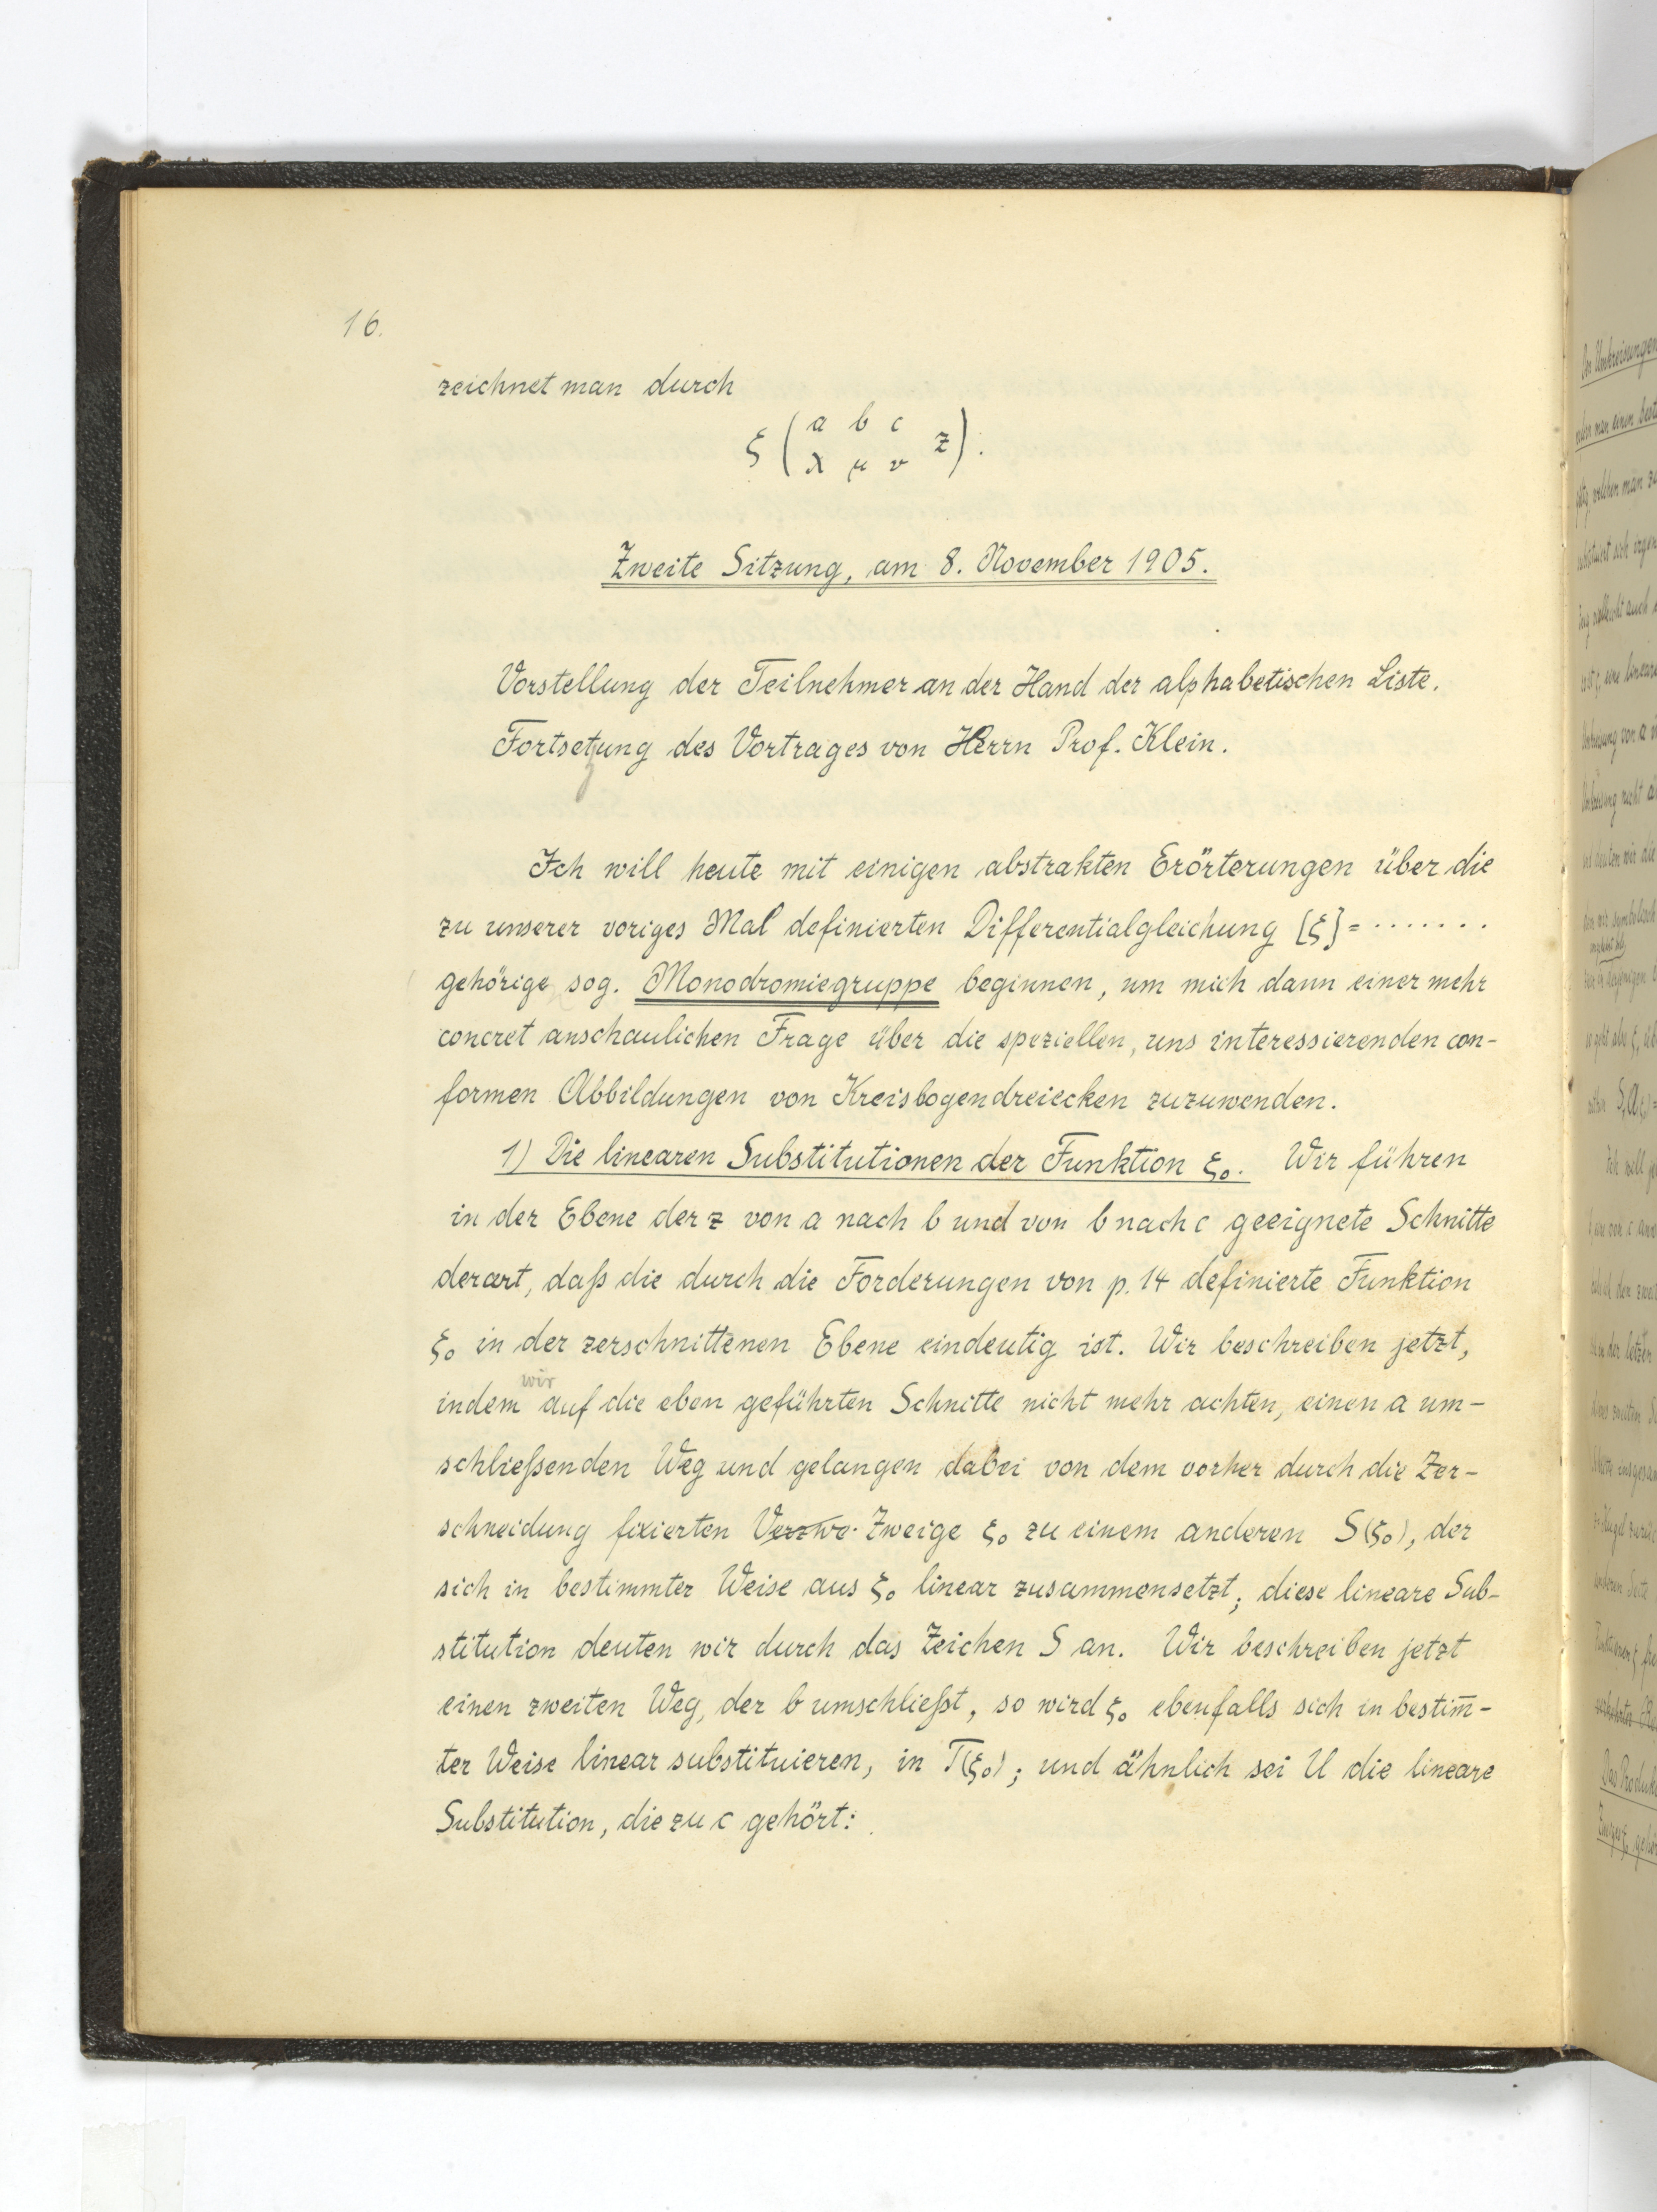 16.
zeichnet man durch
ξ ( a b c z ) .
λ μ ν
Zweite Sitzung, am 8. November 1905.
Vorstellung der Teilnehmer an der Hand der alphabetischen Liste.
Fortsetzung des Vortrages von Herrn Prof. Klein.
Ich will heute mit einigen abstrakten Erörterungen über die
zu unserer voriges Mal definierten Differentialgleichung [ξ] = .......
gehörige sog. Monodromiegruppe beginnen, um mich dann einer mehr
concret anschaulichen Frage über die speziellen, uns interessierenden con-
formen Abbildungen von Kreisbogendreiecken zuzuwenden.
1) Die linearen Substitutionen der Funktion ξ₀. Wir führen
in der Ebene der z von a nach b und von b nach c geeignete Schnitte
derart, daß die durch die Forderungen von p. 14 definierte Funktion
ξ₀ in der zerschnittenen Ebene eindeutig ist. Wir beschreiben jetzt,
wir
indem auf die eben geführten Schnitte nicht mehr achten, einen a um-
schließenden Weg und gelangen dabei von dem vorher durch die Zer-
schneidung fixierten Verzwe. Zweige ξ₀ zu einem anderen S(ξ₀), der
sich in bestimmter Weise aus ξ₀ linear zusammensetzt; diese lineare Sub-
stitution deuten wir durch das Zeichen S an. Wir beschreiben jetzt
einen zweiten Weg, der b umschließt, so wird ξ₀ ebenfalls sich in bestim̄-
ter Weise linear substituieren, in T(ξ₀); und ähnlich sei U die lineare
Substitution, die zu c gehört: